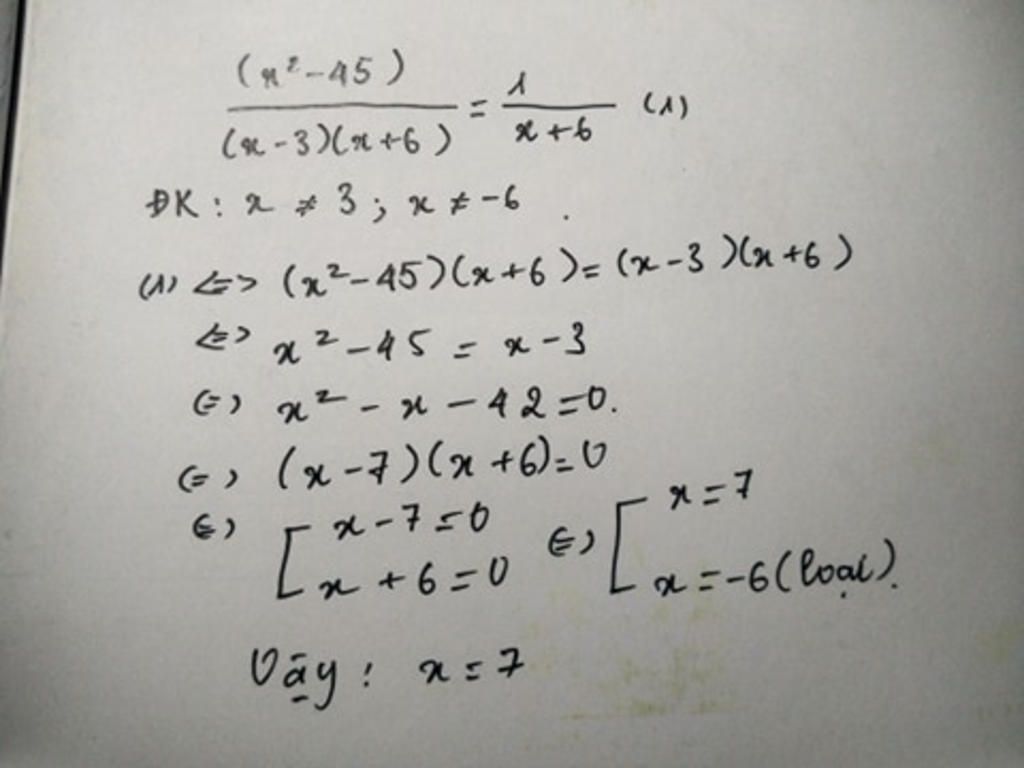 (x²-45) / (x-3)(x+6) = 1 / x+6 (1)
ĐK: x ≠ 3; x ≠ -6.
(1) <=> (x²-45)(x+6)=(x-3)(x+6)
<=> x²-45 = x-3
(=) x² - x - 42 =0.
(=) (x-7)(x+6)=0
(=) [ x-7=0 (=) [ x=7
x+6=0 x=-6 (loại).
Vậy: x=7